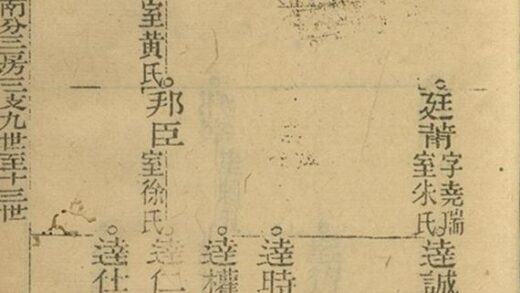 庭莆字堯瑞
室朱氏
達誠
達時
達權
室黃氏
邦臣室徐氏
達仁
達仕
南分三房三支九世至十三世